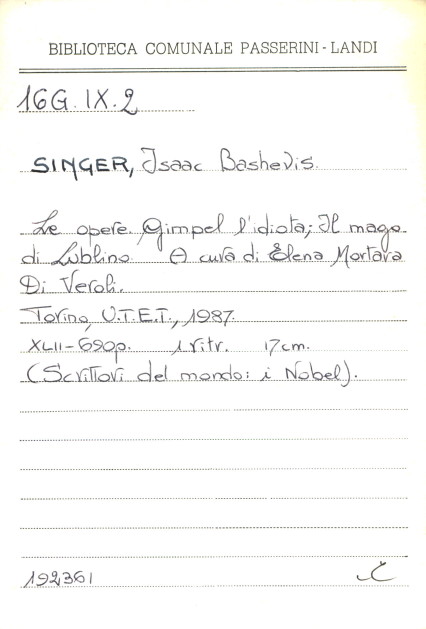 BIBLIOTECA COMUNALE PASSERINI - LANDI
16G. IX. 2
SINGER, Isaac Bashevis.
Le opere. Gimpel l'idiota; Il mago
di Lublino A cura di Elena Mortara
Di Veroli.
Torino, U.T.E.T., 1987.
XLII-690p. 1 ritr. 17cm.
(Scrittori del mondo: i Nobel).
192361